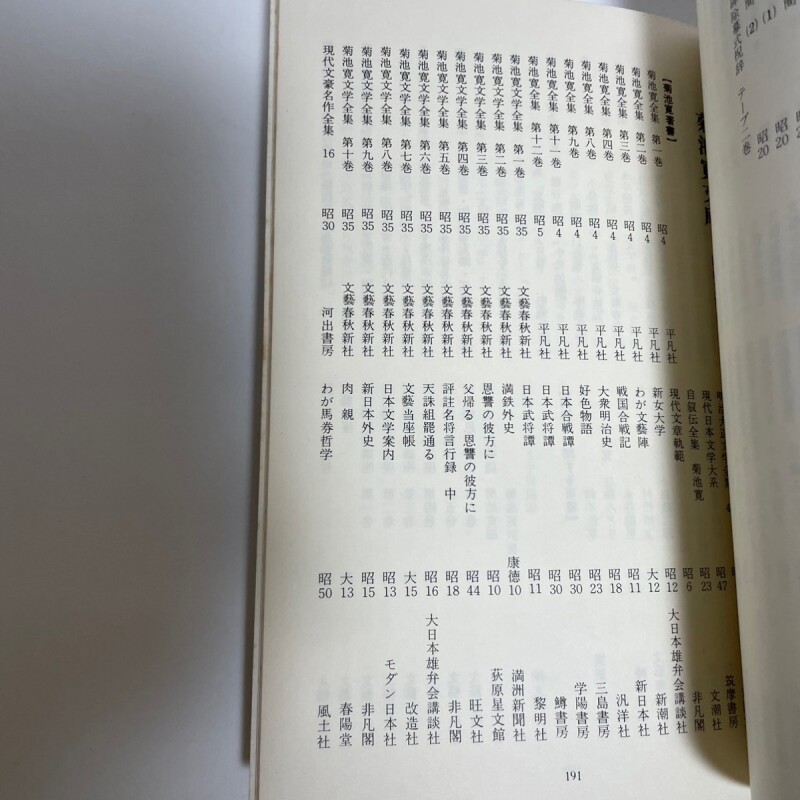 【菊池寛著書】
菊池寛全集 第一巻 昭4 平凡社
菊池寛全集 第二巻 昭4 平凡社
菊池寛全集 第三巻 昭4 平凡社
菊池寛全集 第四巻 昭4 平凡社
菊池寛全集 第八巻 昭4 平凡社
菊池寛全集 第九巻 昭4 平凡社
菊池寛全集 第十一巻 昭4 平凡社
菊池寛全集 第十二巻 昭5 平凡社
菊池寛文学全集 第一巻 昭35 文藝春秋新社
菊池寛文学全集 第二巻 昭35 文藝春秋新社
菊池寛文学全集 第三巻 昭35 文藝春秋新社
菊池寛文学全集 第四巻 昭35 文藝春秋新社
菊池寛文学全集 第五巻 昭35 文藝春秋新社
菊池寛文学全集 第六巻 昭35 文藝春秋新社
菊池寛文学全集 第七巻 昭35 文藝春秋新社
菊池寛文学全集 第八巻 昭35 文藝春秋新社
菊池寛文学全集 第九巻 昭35 文藝春秋新社
菊池寛文学全集 第十巻 昭35 文藝春秋新社
現代文豪名作全集 16 昭30 河出書房
現代日本文学大系 昭47 筑摩書房
自叙伝全集 菊池寛 昭23 文潮社
現代文章軌範 昭6 非凡閣
新女大学 昭12 大日本雄弁会講談社
わが文藝陣 大12 新潮社
戦国合戦記 昭11 新日本社
大衆明治史 昭18 汎洋社
好色物語 昭23 三島書房
日本合戦譚 昭30 学陽書房
日本武将譚 昭30 鱒書房
日本武将譚 昭11 黎明社
満鉄外史 康徳10 満洲新聞社
恩讐の彼方に 昭10 荻原星文館
父帰る 恩讐の彼方に 昭44 旺文社
評註名将言行録 中 昭18 非凡閣
天誅組罷通る 昭16 大日本雄弁会講談社
文藝当座帳 大15 改造社
日本文学案内 昭13 モダン日本社
新日本外史 昭15 非凡閣
肉親 大13 春陽堂
わが馬券哲学 昭50 風土社
191